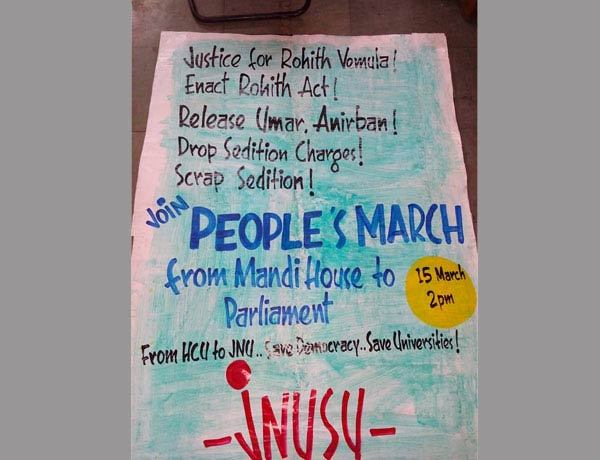 Justice for Rohith Vemula!
Enact Rohith Act!
Release Umar, Anirban!
Drop Sedition Charges!
Scrap Sedition!
JOIN PEOPLE'S MARCH
from Mandi House to
Parliament
15 March
2pm
From HCU to JNU.. Save Democracy.. Save Universities!
-JNUSU-